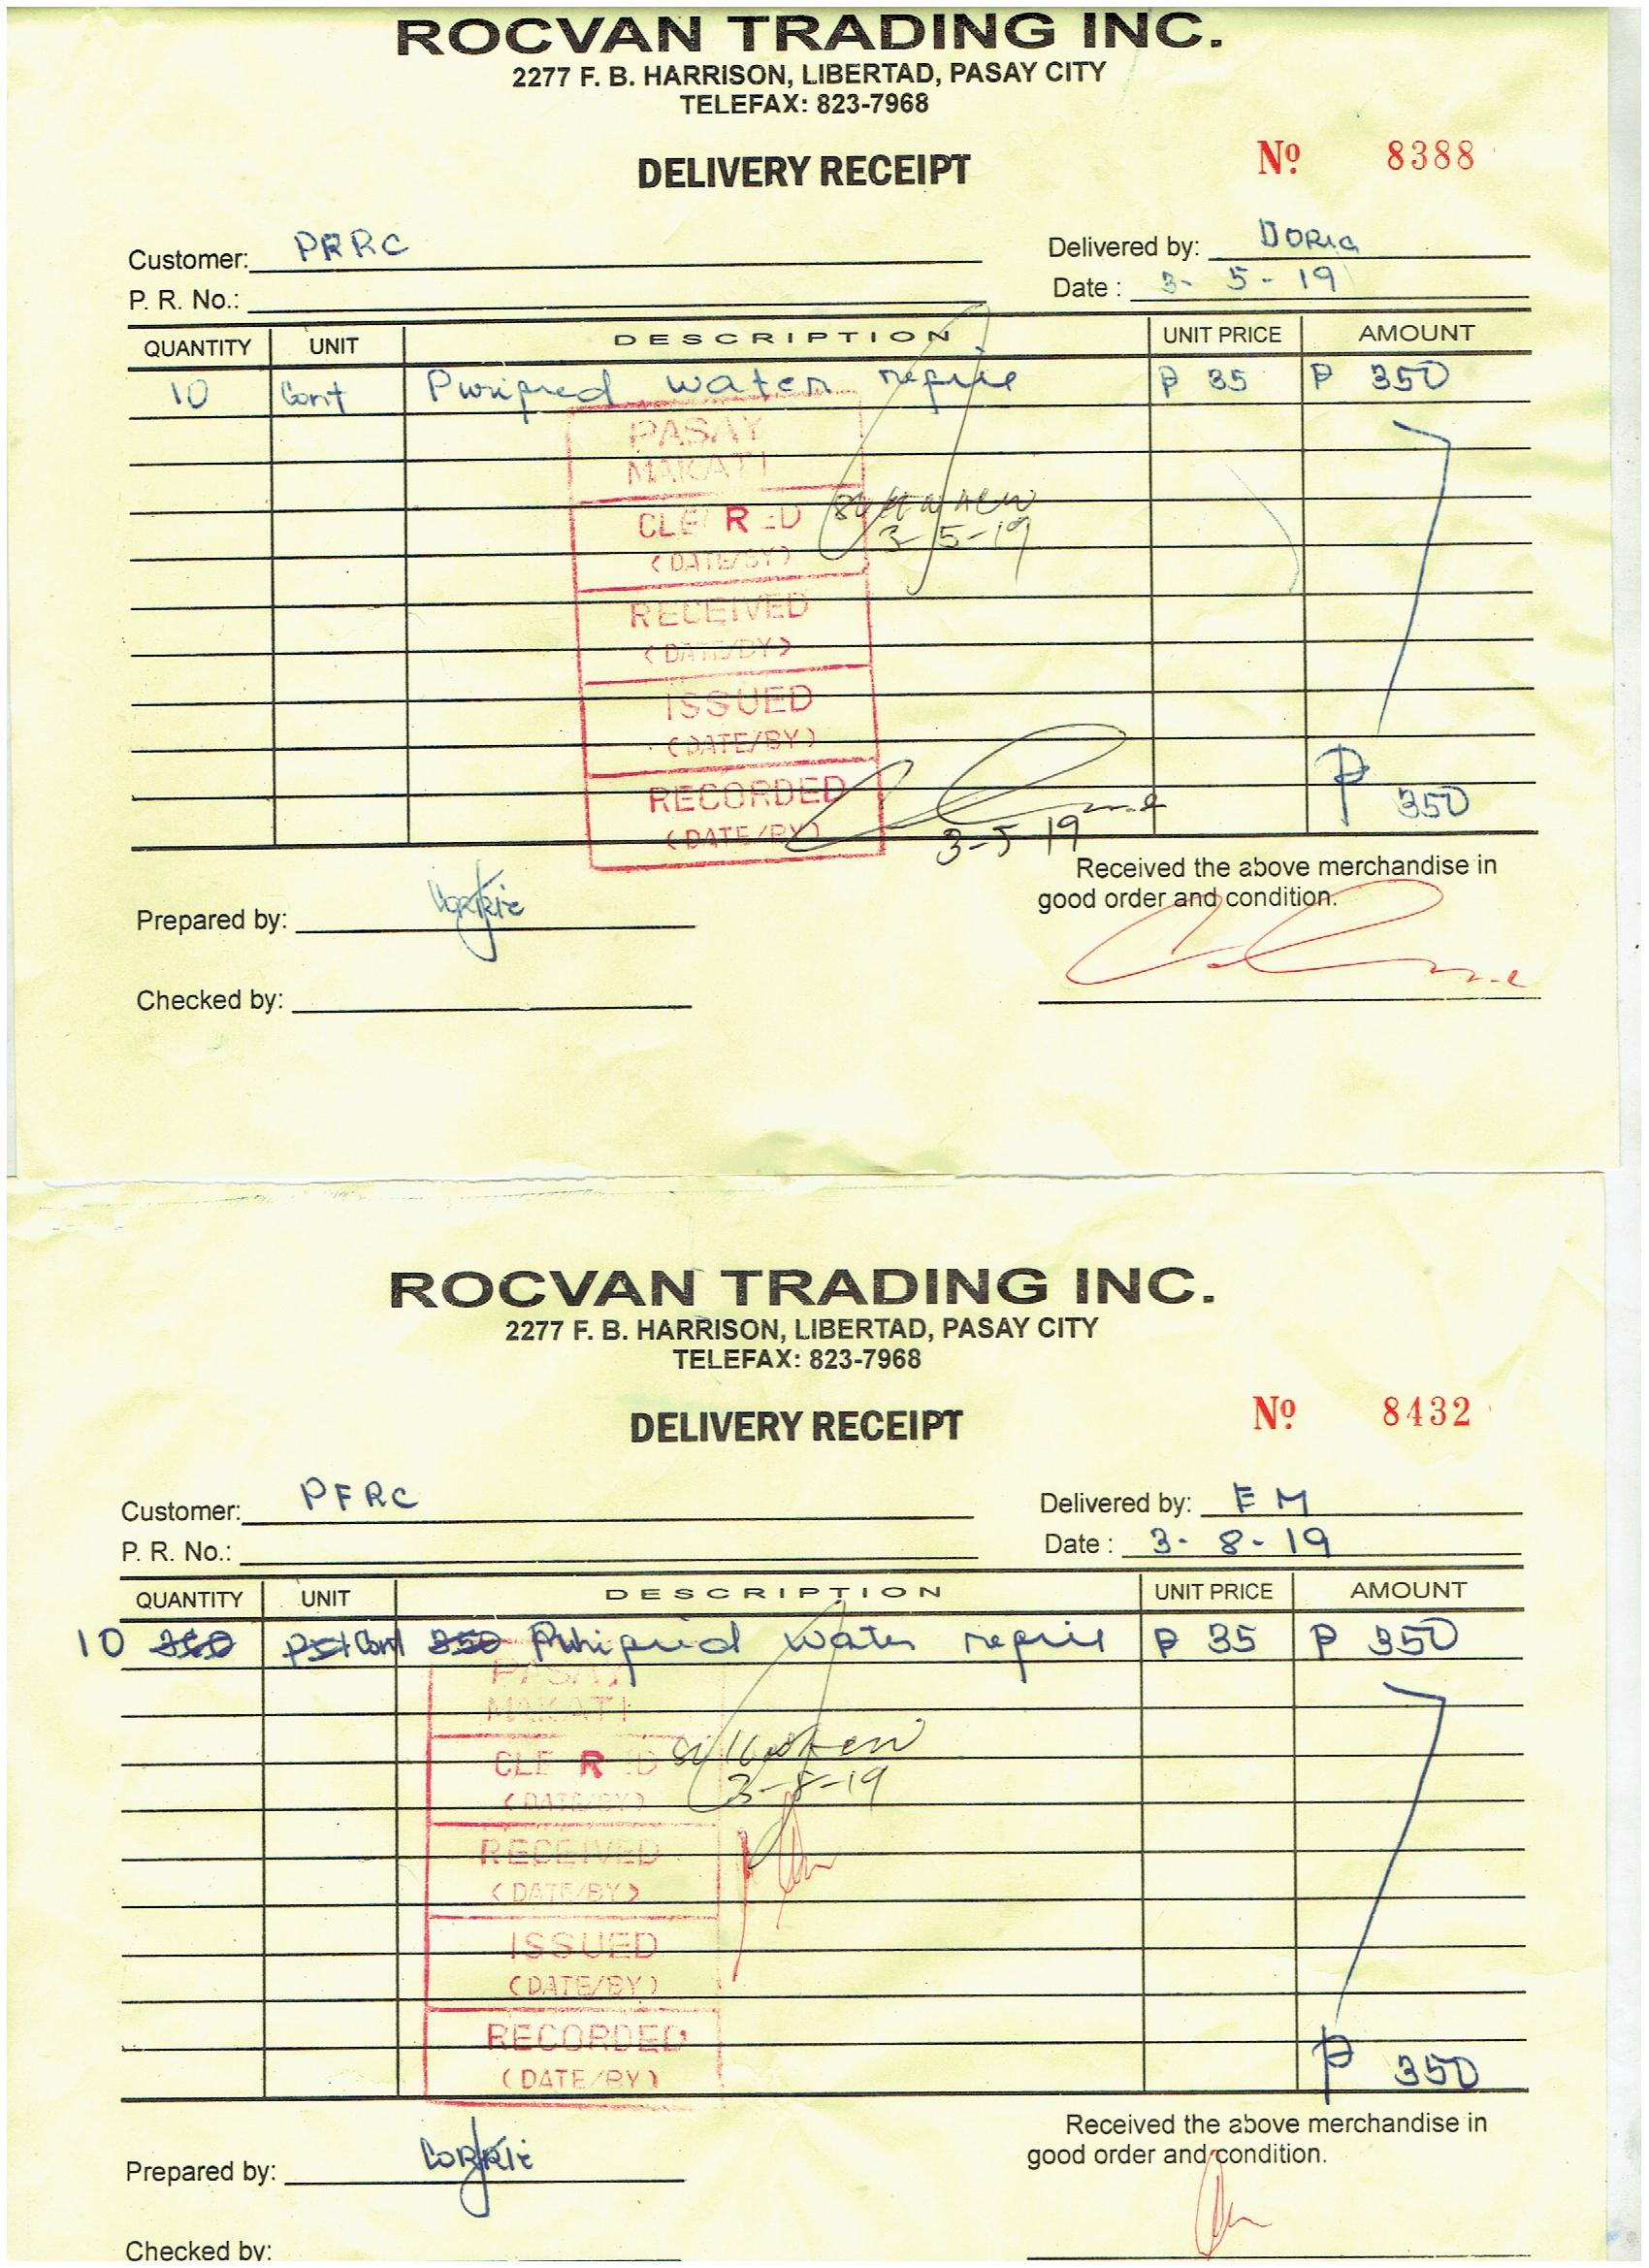 ROCVAN TRADING INC.
2277 F. B. HARRISON, LIBERTAD, PASAY CITY
TELEFAX: 823-7968
DELIVERY RECEIPT
Nº 8388
Customer: PRRC
Delivered by: DORIG
P. R. No.:
Date : 3- 5- 19
QUANTITY UNIT DESCRIPTION UNIT PRICE AMOUNT
10 Cont Purified water refill ₱ 35 ₱ 350
PASAY
MAKATI
CLE R ED
(DATE/BY)
3-5-19
RECEIVED
(DATE/BY)
ISSUED
(DATE/BY)
RECORDED
(DATE/BY)
3-5-19
₱ 350
Received the above merchandise in
good order and condition.
Prepared by:
Checked by:
ROCVAN TRADING INC.
2277 F. B. HARRISON, LIBERTAD, PASAY CITY
TELEFAX: 823-7968
DELIVERY RECEIPT
Nº 8432
Customer: PFRC
Delivered by: EM
P. R. No.:
Date : 3- 8- 19
QUANTITY UNIT DESCRIPTION UNIT PRICE AMOUNT
10 Cont Purified water refill ₱ 35 ₱ 350
PASAY
MAKATI
CLE R D
(DATE/BY)
3-8-19
RECEIVED
(DATE/BY)
ISSUED
(DATE/BY)
RECORDED
(DATE/BY)
₱ 350
Received the above merchandise in
good order and condition.
Prepared by:
Checked by: